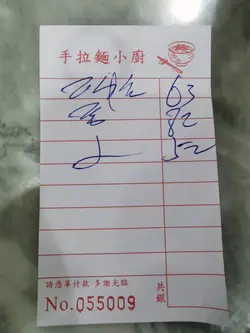 手拉麵小廚
63
82
52
請憑單付款 多謝光臨
共銀
No.055009